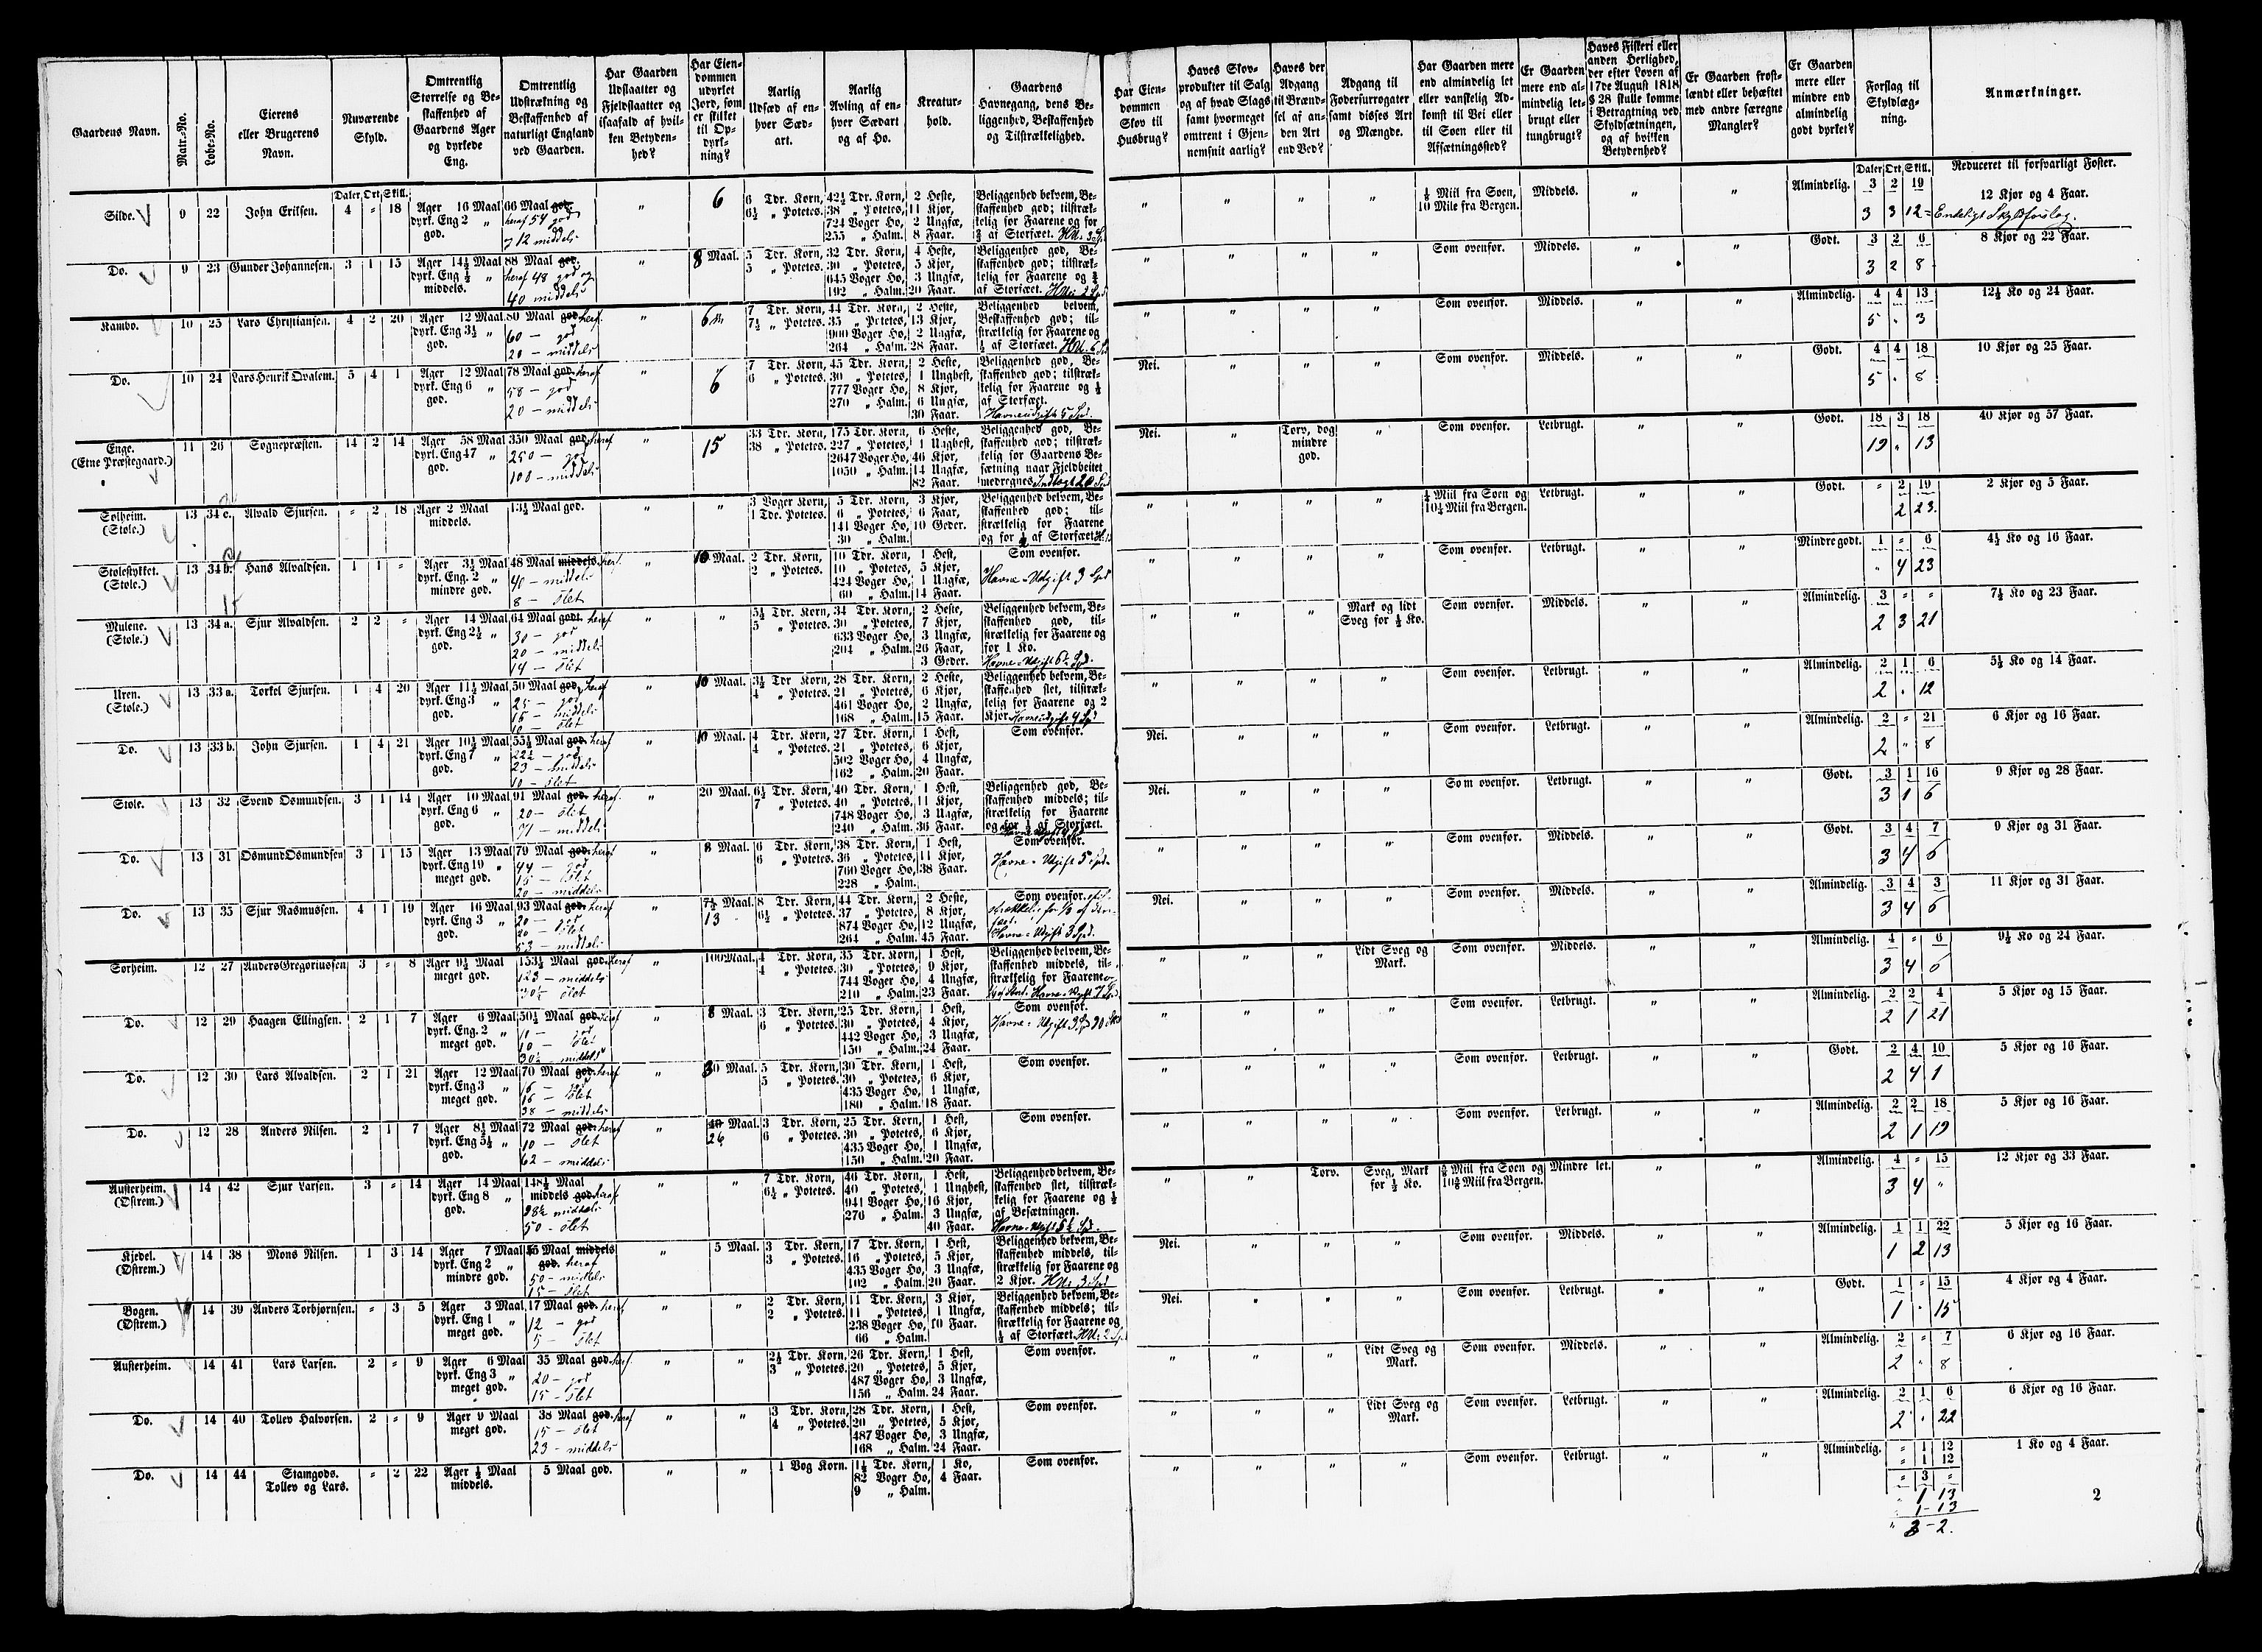 Gaardens Navn. | Matr.-No. | Løbe-No. | Eierens eller Brugerens Navn. | Nuværende Skyld. | Omtrentlig Størrelse og Beskaffenhed af Gaardens Ager og dyrkede Eng. | Omtrentlig Udstrækning og Beskaffenhed af naturligt England ved Gaarden. | Har Gaarden Udslaatter og Fjeldslaatter og isaafald af hvilken Betydenhed? | Har Eiendommen udyrket Jord, som er skikket til Opdyrkning? | Aarlig Udsæd af enhver Sædart. | Aarlig Avling af enhver Sædart og af Hø. | Kreaturhold. | Gaardens Havnegang, dens Beliggenhed, Beskaffenhed og Tilstrækkelighed. | Har Eiendommen Skov til Husbrug? | Haves Skovprodukter til Salg og af hvad Slags samt hvormeget omtrent i Gjennemsnit aarlig? | Haves der Adgang til Brændsel af anden Art end Ved? | Adgang til Foderfurrogater samt disses Art og Mængde. | Har Gaarden mere end almindelig let eller vanskelig Adkomst til Vei eller til Søen eller til Afsætningssted? | Er Gaarden mere end almindelig letbrugt eller tungbrugt? | Haves Fiskeri eller anden Herlighed, der efter Loven af 17de August 1818 § 28 skulle komme i Betragtning ved Skyldsætningen, og af hvilken Betydenhed? | Er Gaarden frostlændt eller behæftet med andre særegne Mangler? | Er Gaarden mere eller mindre end almindelig godt dyrket? | Forslag til Skyldlægning. | Anmærkninger.
Daler Ort Skill. | Daler Ort Skill. | Reduceret til forsvarligt Foster.
Silde. | 9 | 22 | John Eriksen. | 4 | = | 18 | Ager 16 Maal dyrk. Eng 2 „ god. | 66 Maal god. heraf 54 god 12 middels | „ | 6 | 6 Tdr. Korn, 6½ „ Potetes. | 42½ Tdr. Korn, 38 „ Potetes, 724 Voger Hø, 255 „ Halm. | 2 Heste, 11 Kjør, 2 Ungfæ, 8 Faar. | Beliggenhed bekvem, Beskaffenhed god; tilstrækkelig for Faarene og for af Storfæet. | „ | „ | „ | „ | ⅛ Miil fra Søen, 10 Mile fra Bergen. | Middels. | „ | „ | Almindelig. | 3 | 2 | 19 | 12 Kjør og 4 Faar.
3 3 12 = Endeligt Skyldforslag.
Do. | 9 | 23 | Gunder Johannesen. | 3 | 1 | 15 | Ager 14½ Maal dyrk. Eng ½ „ middels. | 88 Maal god. heraf 48 god og 40 middels | „ | 8 Maal. | 5 Tdr. Korn, 5 „ Potetes. | 32 Tdr. Korn, 30 „ Potetes, 645 Voger Hø, 192 „ Halm. | 4 Heste, 5 Kjør, 3 Ungfæ, 20 Faar. | Beliggenhed god, Beskaffenhed god; tilstrækkelig for Faarene og af Storfæet. | „ | „ | „ | „ | Som ovenfor. | Middels. | „ | „ | Godt. | 3 | 2 | 6 | 8 Kjør og 22 Faar.
3 2 8
Kambo. | 10 | 25 | Lars Christiansen. | 4 | 2 | 20 | Ager 12 Maal dyrk. Eng 3½ „ god. | 80 Maal god heraf. 60 - god 20 - middels | „ | 6 | 7 Tdr. Korn, 7½ „ Potetes. | 44 Tdr. Korn, 35 „ Potetes, 900 Voger Hø, 264 „ Halm. | 2 Heste, 13 Kjør, 2 Ungfæ, 28 Faar. | Beliggenhed bekvem, Beskaffenhed god; tilstrækkelig for Faarene og af Storfæet. | „ | „ | „ | „ | Som ovenfor. | Middels. | „ | „ | Almindelig. | 4 | 4 | 13 | 12½ Ko og 24 Faar.
5 . 3
Do. | 10 | 24 | Lars Henrik Qvalem. | 5 | 4 | 1 | Ager 12 Maal dyrk. Eng 6 „ god. | 78 Maal god. heraf 58 - god 20 - middels | „ | 6 | 7 Tdr. Korn, 6 „ Potetes. | 45 Tdr. Korn, 30 „ Potetes, 777 Voger Hø, 270 „ Halm. | 2 Heste, 1 Unghest, 8 Kjør, 6 Ungfæ, 30 Faar. | Beliggenhed god, Beskaffenhed god; tilstrækkelig for Faarene og af Storfæet. Havneudgift 5 Spd. | Nei. | „ | „ | „ | Som ovenfor. | Middels. | „ | „ | Godt. | 4 | 4 | 18 | 10 Kjør og 25 Faar.
5 . 8
Enge. (Etne Præstegaard.) | 11 | 26 | Sognepræsten. | 14 | 2 | 14 | Ager 58 Maal dyrk. Eng 47 „ god. | 350 Maal god, heraf 250 - god 100 - middels | „ | 15 | 33 Tdr. Korn, 38 „ Potetes. | 175 Tdr. Korn, 227 „ Potetes, 2647 Voger Hø, 1050 „ Halm. | 6 Heste, 1 Unghest, 46 Kjør, 14 Ungfæ, 82 Faar. | Beliggenhed god, Beskaffenhed god; tilstrækkelig for Gaardens Besætning naar Fjeldbeitet medregnes. | Nei. | „ | Torv, dog mindre god. | „ | Som ovenfor. | Letbrugt. | „ | „ | Godt. | 18 | 3 | 18 | 40 Kjør og 57 Faar.
19 . 13
Solheim. (Støle.) | 13 | 34 c. | Alvald Sjursen. | = | 2 | 18 | Ager 2 Maal middels. | 13½ Maal god. | „ | „ | 3 Voger Korn, 1 Tde. Potetes. | 5 Tdr. Korn, 6 „ Potetes, 141 Voger Hø, 30 „ Halm. | 3 Kjør, 6 Faar, 10 Geder. | Beliggenhed bekvem, Beskaffenhed god; tilstrækkelig for Faarene og for ½ af Storfæet. | „ | „ | „ | „ | Miil fra Søen og 10¼ Miil fra Bergen. | Letbrugt. | „ | „ | Godt. | = | 2 | 19 | 2 Kjør og 5 Faar.
2 23.
Stølestykket. (Støle.) | 13 | 34 b. | Hans Alvaldsen. | 1 | 1 | = | Ager 3½ Maal dyrk. Eng. 2 „ mindre god. | 48 Maal middels. heraf 40 - middels 8 - slet | „ | 10 Maal. | 2 Tdr. Korn, 2 „ Potetes. | 10 Tdr. Korn, 10 „ Potetes, 424 Voger Hø, 60 „ Halm. | 1 Hest, 5 Kjør, 1 Ungfæ, 14 Faar. | Som ovenfor. Havne-Udgift 3 Spd | „ | „ | „ | „ | Som ovenfor. | Letbrugt. | „ | „ | Mindre godt. | 1 | = | 6 | 4½ Ko og 16 Faar.
„ 4 23
Mulene. (Støle.) | 13 | 34 a. | Sjur Alvaldsen. | 2 | 2 | = | Ager 14 Maal dyrk. Eng 2½ „ god. | 64 Maal godt. heraf 30 - god 20 - middels 14 - slet | „ | „ | 5½ Tdr. Korn, 5 „ Potetes. | 34 Tdr. Korn, 30 „ Potetes, 633 Voger Hø, 204 „ Halm. | 2 Heste, 7 Kjør, 3 Ungfæ, 26 Faar, 3 Geder. | Beliggenhed bekvem, Beskaffenhed god, tilstrækkelig for Faarene og for 1 Ko. | „ | „ | „ | Mark og lidt Sveg for ½ Ko. | Som ovenfor. | Middels. | „ | „ | Almindelig. | 3 | = | = | 7½ Ko og 23 Faar.
2 3 21
Uren. (Støle.) | 13 | 33 a. | Torkel Sjursen. | 1 | 4 | 20 | Ager 11½ Maal dyrk. Eng 3 „ god. | 50 Maal god, heraf 25 - god 15 - middels 10 - slet | „ | 10 Maal. | 3½ Tdr. Korn, 4 „ Potetes. | 28 Tdr. Korn, 21 „ Potetes, 461 Voger Hø, 168 „ Halm. | 2 Heste, 6 Kjør, 2 Ungfæ, 15 Faar. | Beliggenhed bekvem, Beskaffenhed slet, tilstrækkelig for Faarene og 2 Kjør. Havneudgift 4 Spd | „ | „ | „ | „ | Som ovenfor. | Letbrugt. | „ | „ | Almindelig. | 2 | 1 | 6 | 5½ Ko og 14 Faar.
2 . 12
Do. | 13 | 33 b. | John Sjursen. | 1 | 4 | 21 | Ager 10½ Maal dyrk. Eng 7 „ god. | 55½ Maal god. heraf 22½ - god 23 - middels 10 - slet | „ | 10 Maal. | 4 Tdr. Korn, 4 „ Potetes. | 27 Tdr. Korn, 21 „ Potetes, 502 Voger Hø, 162 „ Halm. | 1 Hest, 6 Kjør, 4 Ungfæ, 20 Faar. | Som ovenfor. | Nei. | „ | „ | „ | Som ovenfor. | Letbrugt. | „ | „ | Almindelig. | 2 | = | 21 | 6 Kjør og 16 Faar.
2 „ 8
Støle. | 13 | 32 | Svend Osmundsen. | 3 | 1 | 14 | Ager 10 Maal dyrk. Eng 6 „ god. | 91 Maal god. heraf. 20 - slet 71 - middels | „ | 20 Maal. | 6½ Tdr. Korn, 7 „ Potetes. | 40 Tdr. Korn, 40 „ Potetes, 748 Voger Hø, 240 „ Halm. | 1 Hest, 11 Kjør, 3 Ungfæ, 36 Faar. | Beliggenhed god, Beskaffenhed middels; tilstrækkelig for Faarene og for af Storfæet. | Nei. | „ | „ | „ | Som ovenfor. | Letbrugt. | „ | „ | Godt. | 3 | 1 | 16 | 9 Kjør og 28 Faar.
3 1 6
Do. | 13 | 31 | Osmund Osmundsen | 3 | 1 | 15 | Ager 13 Maal dyrk. Eng 19 „ meget god. | 79 Maal god. heraf 44 - god 15 - slet 20 - middels | „ | 8 Maal. | 6 Tdr. Korn, 6 „ Potetes. | 38 Tdr. Korn, 36 „ Potetes, 760 Voger Hø, 228 „ Halm. | 1 Hest, 11 Kjør, 38 Faar. | Som ovenfor. Havne-Udgift 5 Spd. | „ | „ | „ | „ | Som ovenfor. | Middels. | „ | „ | Godt. | 3 | 4 | 7 | 9 Kjør og 31 Faar.
3 4 6
Do. | 13 | 35 | Sjur Rasmussen. | 4 | 1 | 19 | Ager 16 Maal dyrk. Eng 3 „ god. | 93 Maal god. heraf 20 - god 20 - slet 53 - middels | „ | 7½ Maal. 13 | 8 Tdr. Korn, 6½ „ Potetes. | 44 Tdr. Korn, 37 „ Potetes, 874 Voger Hø, 264 „ Halm. | 2 Heste, 8 Kjør, 12 Ungfæ, 45 Faar. | Som ovenfor. Havne-Udgift 3 Spd. | Nei. | „ | „ | „ | Som ovenfor. | Middels. | „ | „ | Almindelig. | 3 | 4 | 3 | 11 Kjør og 31 Faar.
3 4 6
Sørheim. | 12 | 27 | Anders Gregoriussen | 3 | = | 8 | Ager 9½ Maal meget god. | 153½ Maal god. heraf 123 - middels 30½ - slet | „ | 100 Maal. | 4 Tdr. Korn, 4 „ Potetes. | 35 Tdr. Korn, 30 „ Potetes, 744 Voger Hø, 210 „ Halm. | 1 Hest, 9 Kjør, 4 Ungfæ, 23 Faar. | Beliggenhed bekvem, Beskaffenhed middels, tilstrækkelig for Faarene | „ | „ | „ | Lidt Sveg og Mark. | Som ovenfor. | Middels. | „ | „ | Almindelig. | 4 | = | 6 | 9½ Ko og 24 Faar.
3 4 6
Do. | 12 | 29 | Haagen Ellingsen. | 2 | 1 | 7 | Ager 6 Maal dyrk. Eng. 2 „ meget god. | 50½ Maal god. heraf 10 - god 10 - slet 30½ - middels | „ | 8 Maal. | 3 Tdr. Korn, 6 „ Potetes. | 25 Tdr. Korn, 30 „ Potetes, 442 Voger Hø, 150 „ Halm. | 1 Hest, 4 Kjør, 3 Ungfæ, 24 Faar. | Som ovenfor. | „ | „ | „ | „ | Som ovenfor. | Letbrugt. | „ | „ | Almindelig. | 2 | 2 | 4 | 5 Kjør og 15 Faar.
2 1 21
Do. | 12 | 30 | Lars Alvaldsen. | 2 | 1 | 21 | Ager 12 Maal dyrk. Eng 3 „ meget god. | 70 Maal god. heraf 16 - god 16 - slet 38 - middels | „ | 30 Maal. | 5 Tdr. Korn, 5 „ Potetes. | 30 Tdr. Korn, 30 „ Potetes, 435 Voger Hø, 180 „ Halm. | 1 Hest, 6 Kjør, 1 Ungfæ, 18 Faar. | Som ovenfor. | „ | „ | „ | „ | Som ovenfor. | Letbrugt. | „ | „ | Godt. | 2 | 4 | 10 | 5 Kjør og 16 Faar.
2 4 1
Do. | 12 | 28 | Anders Nilsen. | 2 | 1 | 7 | Ager 8½ Maal dyrk. Eng 5½ „ god. | 72 Maal god. heraf 10 - slet 62 - middels | „ | 40 Maal. 26 | 3 Tdr. Korn, 6 „ Potetes. | 25 Tdr. Korn, 30 „ Potetes, 435 Voger Hø, 150 „ Halm. | 1 Hest, 6 Kjør, 1 Ungfæ, 20 Faar. | Som ovenfor. | „ | „ | „ | „ | Som ovenfor. | Letbrugt. | „ | „ | Almindelig. | 2 | 2 | 18 | 5 Kjør og 16 Faar.
2 1 19
Austerheim. (Østrem.) | 14 | 42 | Sjur Larsen. | 3 | = | 14 | Ager 14 Maal dyrk. Eng 8 „ god. | 148½ Maal middels god. heraf 98½ middels 50 - slet | „ | „ | 7 Tdr. Korn, 6½ „ Potetes. | 46 Tdr. Korn, 40 „ Potetes, 941 Voger Hø, 276 „ Halm. | 1 Hest, 1 Unghest, 16 Kjør, 3 Ungfæ, 40 Faar. | Beliggenhed bekvem, Beskaffenhed slet, tilstrækkelig for Faarene og ½ af Besætningen. | „ | „ | Torv. | Sveg, Mark for ½ Ko. | Miil fra Søen og Miil fra Bergen. | Mindre let. | „ | „ | Almindelig. | 4 | = | 15 | 12 Kjør og 33 Faar.
3 4 „
Kjedel. (Østrem.) | 14 | 38 | Mons Nilsen. | 1 | 3 | 14 | Ager 7 Maal dyrk. Eng 2 „ mindre god. | Maal middels god. heraf 50 - middels 15 - slet | „ | 5 Maal. | 3 Tdr. Korn, 3 „ Potetes. | 17 Tdr. Korn, 16 „ Potetes, 435 Voger Hø, 102 „ Halm. | 1 Hest, 5 Kjør, 3 Ungfæ, 20 Faar. | Beliggenhed bekvem, Beskaffenhed middels, tilstrækkelig for Faarene og 2 Kjør. | Nei. | „ | „ | „ | Som ovenfor. | Middels. | „ | „ | Almindelig. | 1 | 1 | 22 | 5 Kjør og 16 Faar.
1 2 13
Bogen. (Østrem.) | 14 | 39 | Anders Torbjørnsen. | = | 3 | 5 | Ager 3 Maal dyrk. Eng 1 „ meget god. | 17 Maal god. heraf 12 - god 5 - slet | „ | „ | 2 Tdr. Korn, 2 „ Potetes. | 11 Tdr. Korn, 11 „ Potetes, 238 Voger Hø, 66 „ Halm. | 3 Kjør, 1 Ungfæ, 10 Faar. | Beliggenhed bekvem, Beskaffenhed middels; tilstrækkelig for Faarene og af Storfæet. | Nei. | „ | „ | „ | Som ovenfor. | Letbrugt. | „ | „ | Godt. | 1 | = | 15 | 4 Kjør og 4 Faar.
1 . 15
Austerheim. | 14 | 41 | Lars Larsen. | 2 | = | 9 | Ager 6 Maal dyrk. Eng 3 „ meget god. | 35 Maal god. heraf. 20 - god 15 - slet | „ | „ | 2½ Tdr. Korn, 3 „ Potetes. | 26 Tdr. Korn, 20 „ Potetes, 487 Voger Hø, 156 „ Halm. | 1 Hest, 5 Kjør, 3 Ungfæ, 24 Faar. | Som ovenfor. | „ | „ | „ | Lidt Sveg og Mark. | Som ovenfor. | Middels. | „ | „ | Almindelig. | 2 | = | 7 | 6 Kjør og 16 Faar.
2 „ 8
Do. | 14 | 40 | Tollev Halvorsen. | 2 | = | 9 | Ager 9 Maal meget god. | 38 Maal god. heraf 15 - slet 23 - middels | „ | „ | 3 Tdr. Korn, 4 „ Potetes. | 28 Tdr. Korn, 20 „ Potetes, 487 Voger Hø, 168 „ Halm. | 1 Hest, 5 Kjør, 3 Ungfæ, 24 Faar. | Som ovenfor. | „ | „ | „ | Lidt Sveg og Mark. | Som ovenfor. | Letbrugt. | „ | „ | Almindelig. | 2 | 1 | 6 | 6 Kjør og 16 Faar.
2 . 22
Do. | 14 | 44 | Stamgods. Tollev og Lars. | = | 2 | 22 | Ager ½ Maal middels. | 5 Maal god. | „ | „ | 1 Vog Korn. | 1½ Tde. Korn, 82 Voger Hø, 9 „ Halm. | 1 Ko, 4 Faar. | Som ovenfor. | „ | „ | „ | „ | Som ovenfor. | Letbrugt. | „ | „ | Almindelig. | = | 1 | 12 | 1 Ko og 4 Faar.
= 1 12
= 3 =
1 13
1 - 13
„ 3 - 2.
2